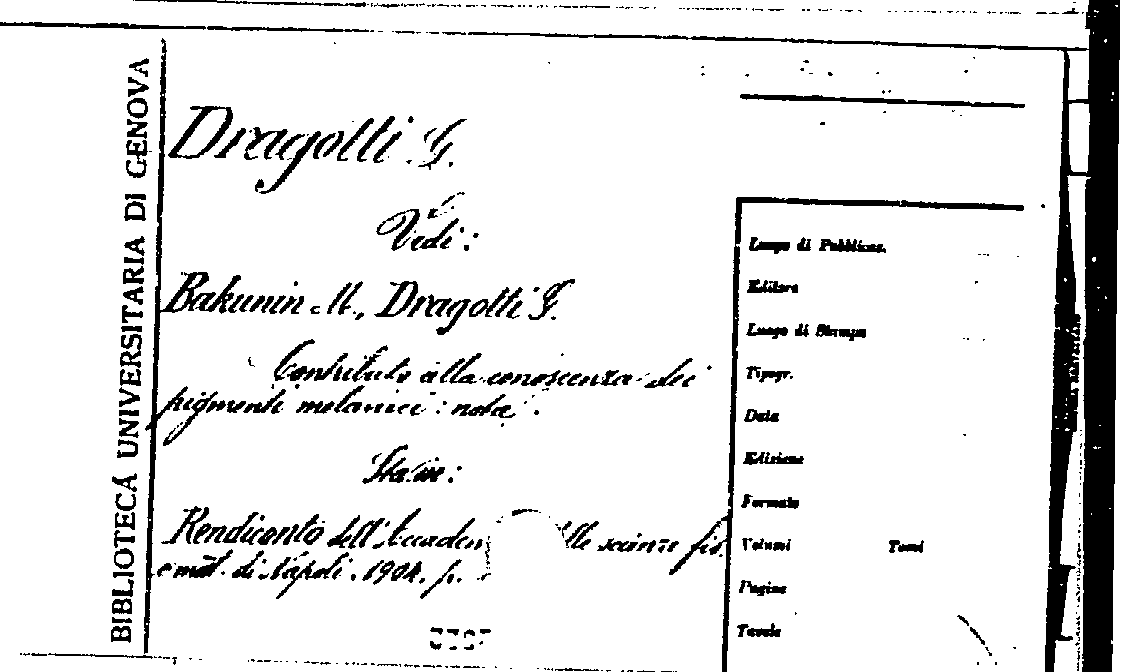 BIBLIOTECA UNIVERSITARIA DI GENOVA
Dragotti G.
Vedi:
Bakunin M., Dragotti G.
Contributo alla conoscenza dei
pigmenti melanici: nota.
Sta in:
Rendiconto dell'Accadem delle scienze fis.
e mat. di Napoli. 1904. p.
Luogo di Pubblicaz.
Editore
Luogo di Stampa
Tipogr.
Data
Edizione
Formato
Volumi Tomi
Pagine
Tavole